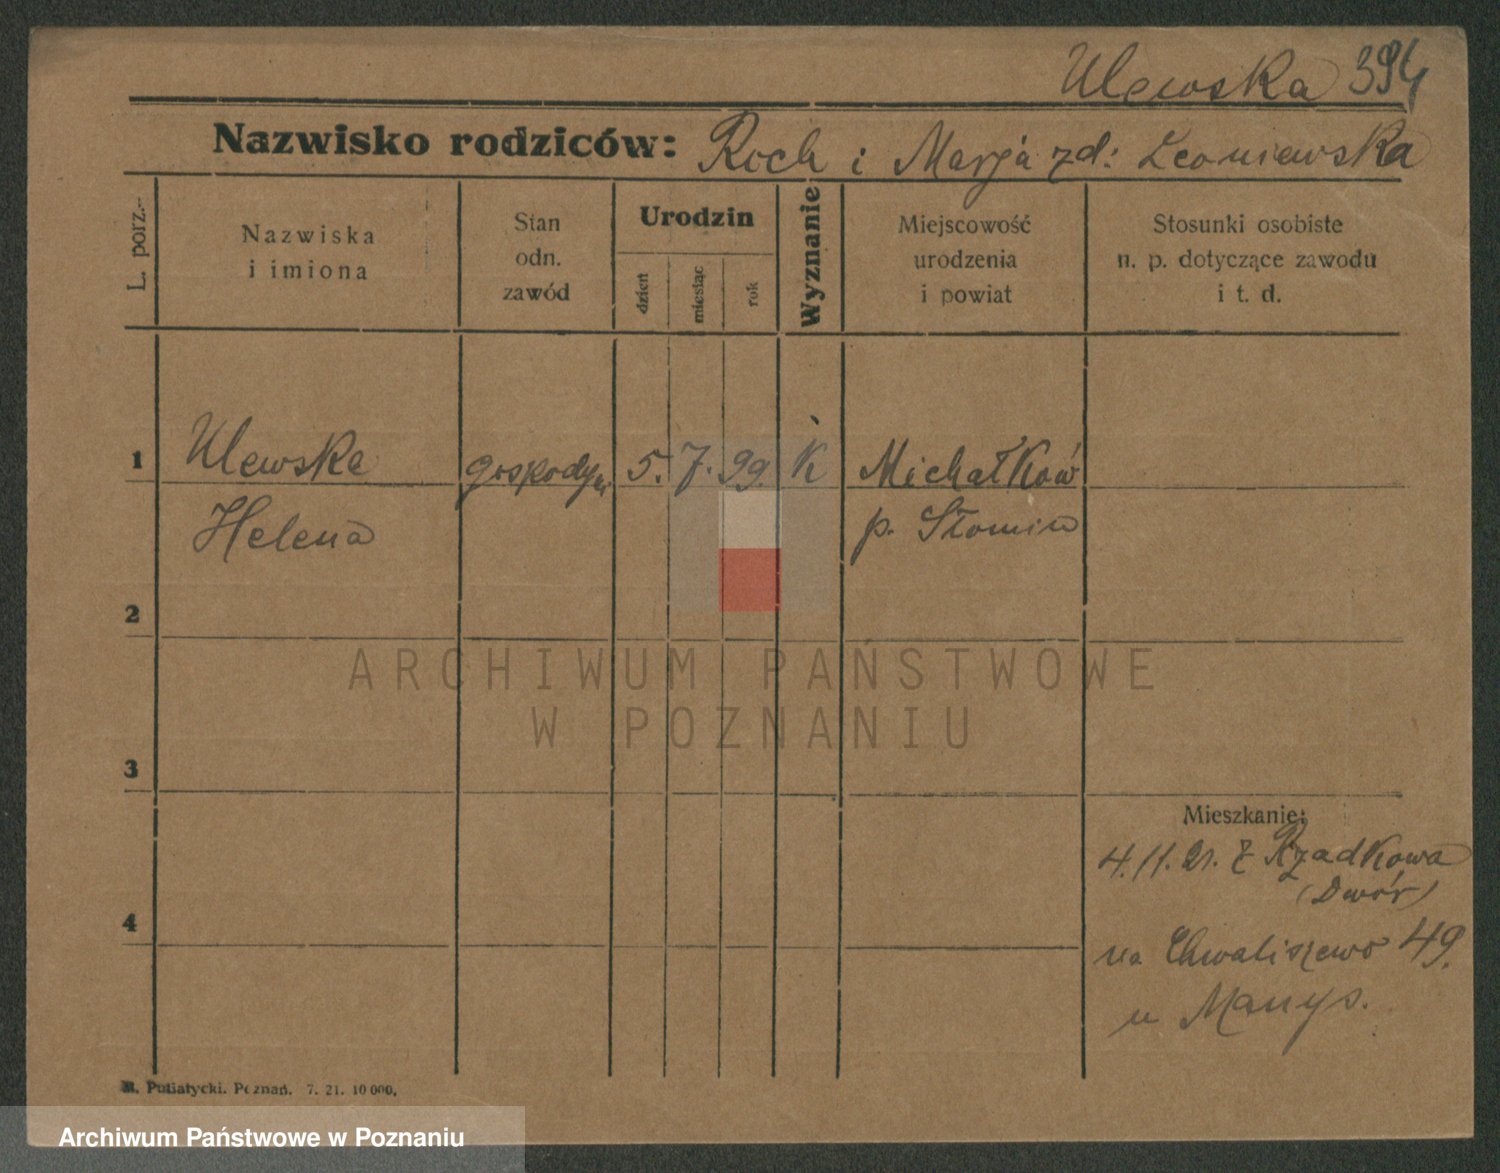 Ulewska 394
Nazwisko rodziców: Roch i Marja zd: Leoniewska
L. porz.-
Nazwiska
i imiona
Stan
odn.
zawód
Urodzin
dzień
miesiąc
rok
Wyznanie
Miejscowość
urodzenia
i powiat
Stosunki osobiste
n. p. dotyczące zawodu
i t. d.
1
Ulewska gospodyn 5. 7. 99. K Michałków
Helena p.
2
ARCHIWUM PAŃSTWOWE
W POZNANIU
3
Mieszkanie:
4. 11. 21. z Rządkowa
(Dwór)
4
na Chwaliszewo 49.
u
Putiatycki. Poznań. 7. 21. 10 000.
Archiwum Państwowe w Poznaniu